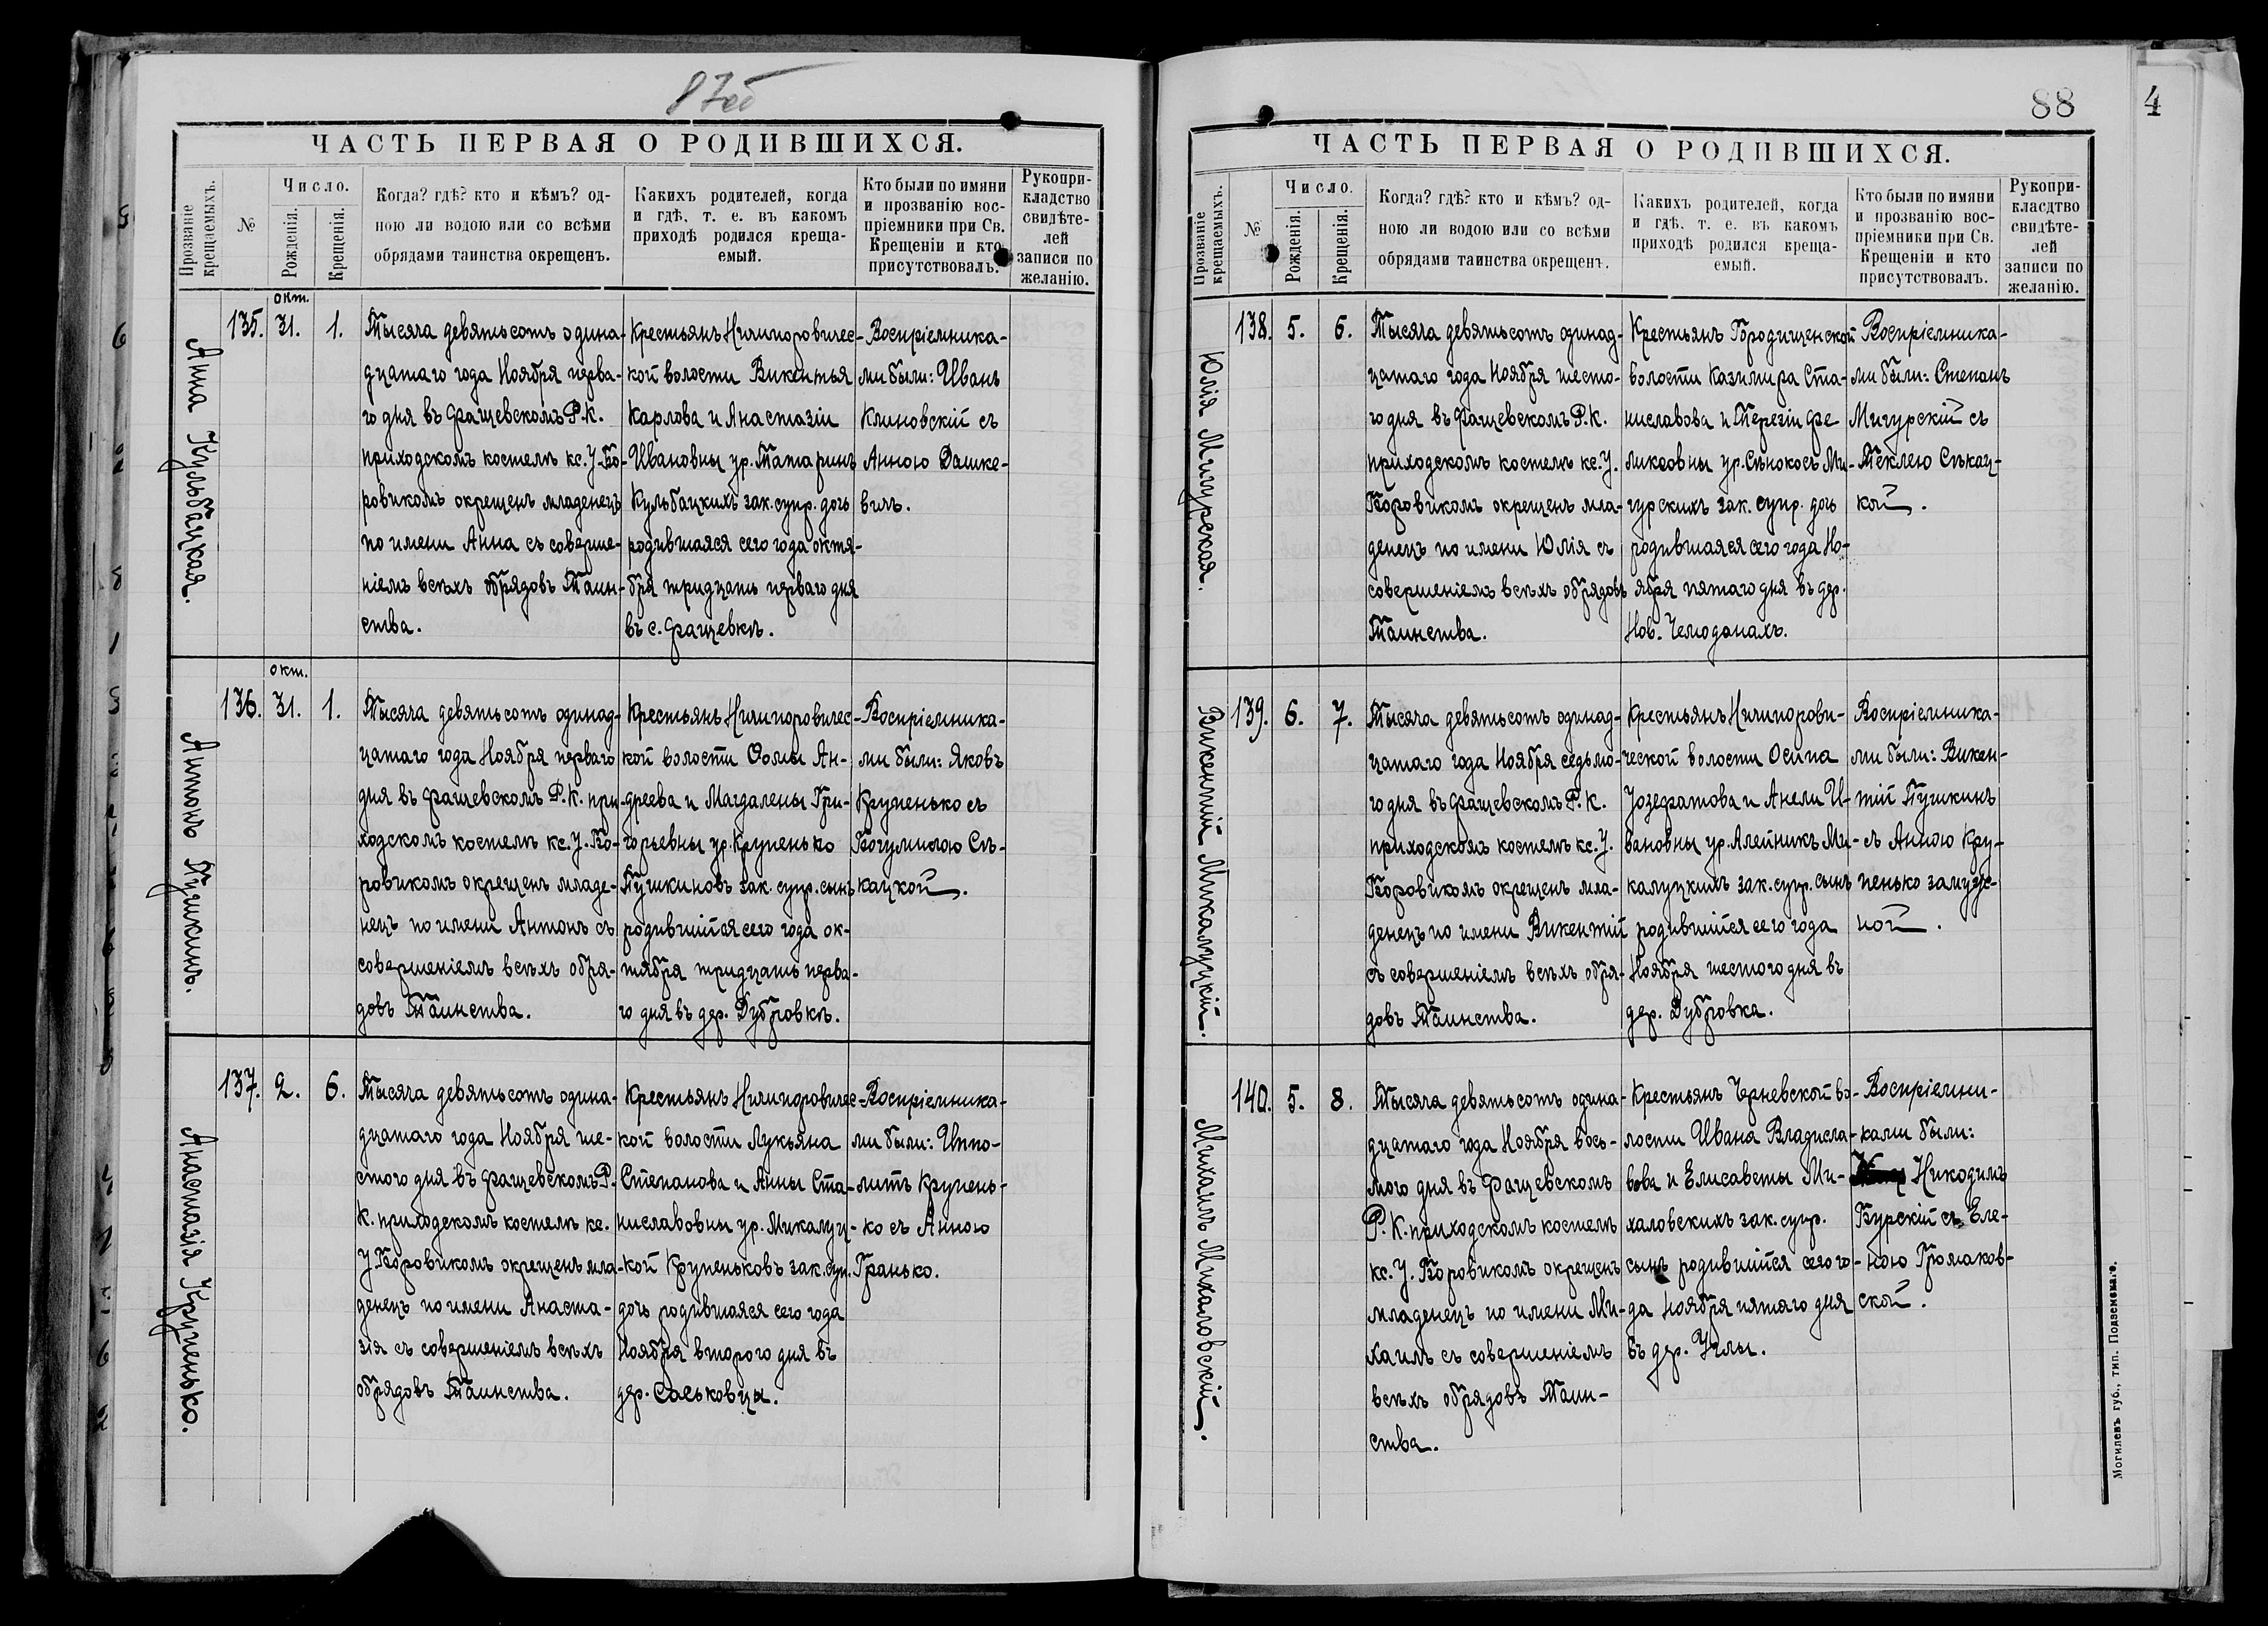 87об
ЧАСТЬ ПЕРВАЯ О РОДИВШИХСЯ.
Прозваніе крещаемыхъ.
№
Число.
Рожденія.
Крещенія.
Когда? гдѣ? кто и кѣмъ? од-
ною ли водою или со всѣми
обрядами таинства окрещенъ.
Какихъ родителей, когда
и гдѣ, т. е. въ какомъ
приходѣ родился креща-
емый.
Кто были по имяни
и прозванію вос-
пріемники при Св.
Крещеніи и кто
присутствовалъ.
Рукопри-
кладство
свидѣте-
лей
записи по
желанію.
Анна Кульбацкая.
135.
окт.
31.
1.
Тысяча девятьсотъ одина-
дцатаго года Ноября перва-
го дня въ Фащевскомъ Р.К.
приходскомъ костелѣ кс. У. Бо-
ровикомъ окрещенъ младенецъ
по имени Анна съ соверше-
ніемъ всѣхъ обрядовъ Таин-
ства.
Крестьянъ Ничипоровичес-
кой волости Викентья
Карлова и Анастазіи
Ивановны ур. Татаринъ
Кульбацкихъ зак. супр. дочь
родившаяся сего года октя-
бря тридцать перваго дня
въ с. Фащевкѣ.
Воспріемника-
ми были: Иванъ
Клиновскій съ
Анною Дашке-
вичъ.
Антонъ Пушкинъ.
136.
окт.
31.
1.
Тысяча девятьсотъ одинад-
цатаго года Ноября перваго
дня въ Фащевскомъ Р.К. при-
ходскомъ костелѣ кс. У. Бо-
ровикомъ окрещенъ младе-
нецъ по имени Антонъ съ
совершеніемъ всѣхъ обря-
довъ Таинства.
Крестьянъ Ничипоровичес-
кой волости Ѳомы Ан-
дреева и Магдалены Гри-
горьевны ур. Крупенько
Пушкиновъ зак. супр. сынъ
родившійся сего года ок-
тября тридцать перва-
го дня въ дер. Дубровкѣ.
Воспріемника-
ми были: Яковъ
Крупенько съ
Богумилою Сѣ-
кацкой.
Анастазія Крупенько.
137.
2.
6.
Тысяча девятьсотъ одина-
дцатаго года Ноября ше-
стого дня въ Фащевскомъ Р.
К. приходскомъ костелѣ кс.
У. Боровикомъ окрещенъ мла-
денецъ по имени Анаста-
зія съ совершеніемъ всѣхъ
обрядовъ Таинства.
Крестьянъ Ничипоровичес-
кой волости Лукьяна
Степанова и Анны Ста-
ниславовны ур. Микалуц-
кой Крупеньковъ зак. суп.
дочь родившаяся сего года
Ноября второго дня въ
дер. Саськовцы.
Воспріемника-
ми были: Иппо-
литъ Крупень-
ко съ Анною
Гранько.
88
4
ЧАСТЬ ПЕРВАЯ О РОДИВШИХСЯ.
Прозваніе крещаемыхъ.
№
Число.
Рожденія.
Крещенія.
Когда? гдѣ? кто и кѣмъ? од-
ною ли водою или со всѣми
обрядами таинства окрещенъ.
Какихъ родителей, когда
и гдѣ, т. е. въ какомъ
приходѣ родился креща-
емый.
Кто были по имяни
и прозванію вос-
пріемники при Св.
Крещеніи и кто
присутствовалъ.
Рукопри-
класдтво
свидѣте-
лей
записи по
желанію.
Юлія Мигурская.
138.
5.
6.
Тысяча девятьсотъ одинад-
цатаго года Ноября шесто-
го дня въ Фащевскомъ Р.К.
приходскомъ костелѣ кс. У.
Боровикомъ окрещенъ мла-
денецъ по имени Юлія съ
совершеніемъ всѣхъ обрядовъ
Таинства.
Крестьянъ Городищенской
волости Казимира Ста-
ниславова и Терезіи Фе
ликсовны ур. Сѣнокосъ Ми-
гурскихъ зак. супр. дочь
родившаяся сего года Но-
ября пятаго дня въ дер.
Нов. Чемоданахъ.
Воспріемника-
ми были: Степанъ
Мигурскій съ
Теклею Сѣкац-
кой.
Викентій Микалуцкій.
139.
6.
7.
Тысяча девятьсотъ одинад-
цатаго года Ноября седьмо-
го дня въ Фащевскомъ Р.К.
приходскомъ костелѣ кс. У.
Боровикомъ окрещенъ мла-
денецъ по имени Викентій
съ совершеніемъ всѣхъ обря-
довъ Таинства.
Крестьянъ Ничипорови-
ческой волости Осипа
Іозефатова и Анели И-
вановны ур. Алейникъ Ми-
калуцкихъ зак. супр. сынъ
родившійся сего года
Ноября шестого дня въ
дер. Дубровка.
Воспріемника-
ми были: Викен-
тій Пушкинъ
съ Анною Кру-
пенько замуж-
ной.
Михаилъ Михаловскій.
140.
5.
8.
Тысяча девятьсотъ одина-
дцатаго года Ноября вось-
мого дня въ Фащевскомъ
Р. К. приходскомъ костелѣ
кс. У. Боровикомъ окрещенъ
младенецъ по имени Ми-
хаилъ съ совершеніемъ
всѣхъ обрядовъ Таин-
ства.
Крестьянъ Черневской во-
лости Ивана Владисла-
вова и Елисаветы Ми-
халовскихъ зак. супр.
сынъ родившійся сего го-
да Ноября пятаго дня
въ дер. Углы.
Воспріемни-
ками были:
Никодимъ
Бурскій съ Еле-
ною Громаков-
ской.
Могилевъ губ., тип. Подземскаго.